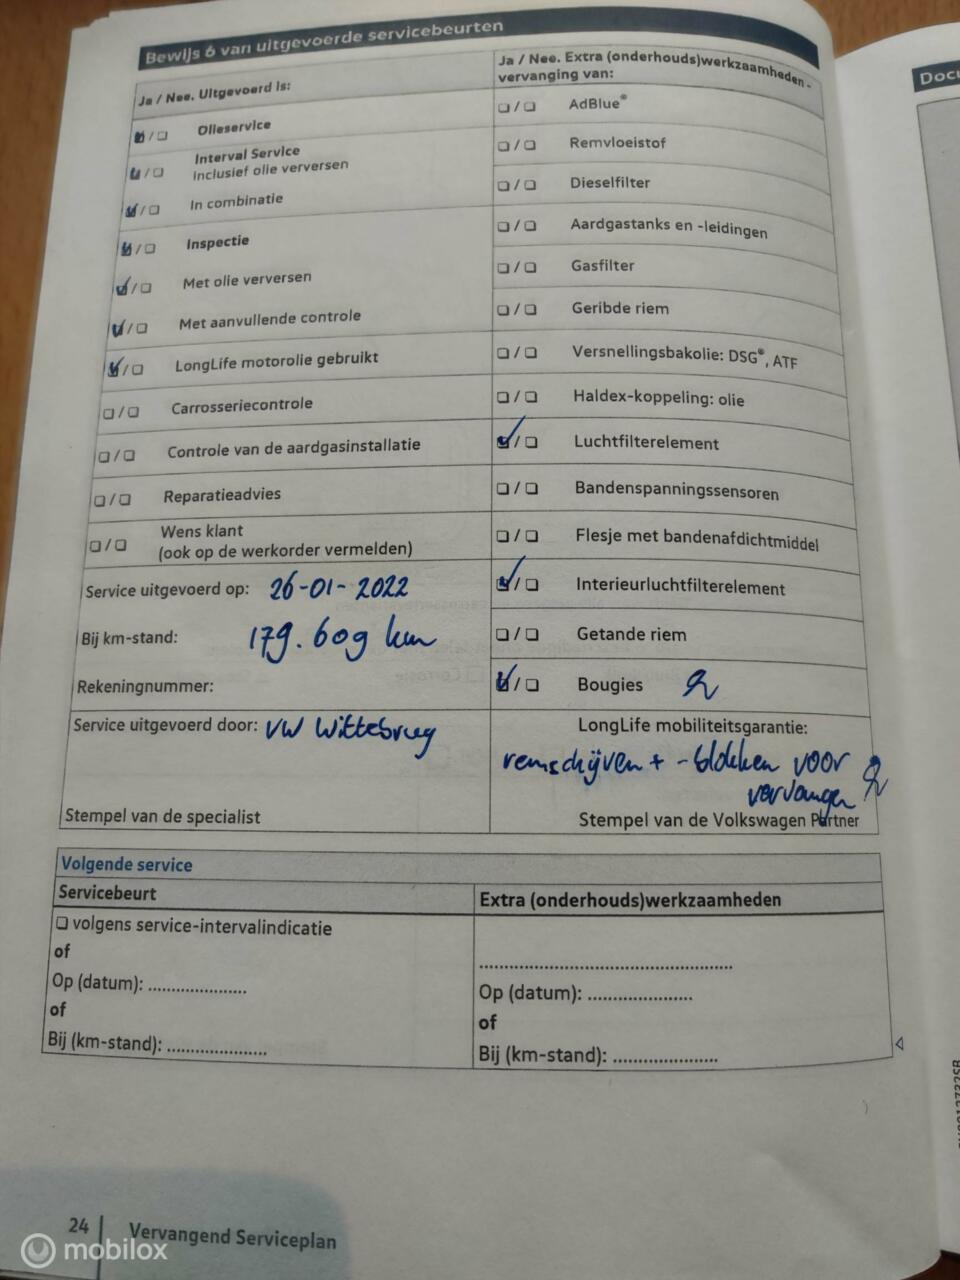 Bewijs 6 van uitgevoerde servicebeurten
Ja / Nee. Uitgevoerd is:
/ Olieservice
/ Interval Service
inclusief olie verversen
/ In combinatie
/ Inspectie
/ Met olie verversen
/ Met aanvullende controle
/ LongLife motorolie gebruikt
/ Carrosseriecontrole
/ Controle van de aardgasinstallatie
/ Reparatieadvies
/ Wens klant
(ook op de werkorder vermelden)
Service uitgevoerd op: 26-01-2022
Bij km-stand: 179.609 km
Rekeningnummer:
Service uitgevoerd door: VW Wittebrug
Stempel van de specialist
Ja / Nee. Extra (onderhouds)werkzaamheden -
vervanging van:
/ AdBlue®
/ Remvloeistof
/ Dieselfilter
/ Aardgastanks en -leidingen
/ Gasfilter
/ Geribde riem
/ Versnellingsbakolie: DSG®, ATF
/ Haldex-koppeling: olie
/ Luchtfilterelement
/ Bandenspanningssensoren
/ Flesje met bandenafdichtmiddel
/ Interieurluchtfilterelement
/ Getande riem
/ Bougies
LongLife mobiliteitsgarantie:
remschijven + -blokken voor
vervangen
Stempel van de Volkswagen Partner
Volgende service
Servicebeurt
volgens service-intervalindicatie
of
Op (datum): .....................
of
Bij (km-stand): .....................
Extra (onderhouds)werkzaamheden
.....................................................
Op (datum): ......................
of
Bij (km-stand): ......................
24 Vervangend Serviceplan
mobilox
Docu